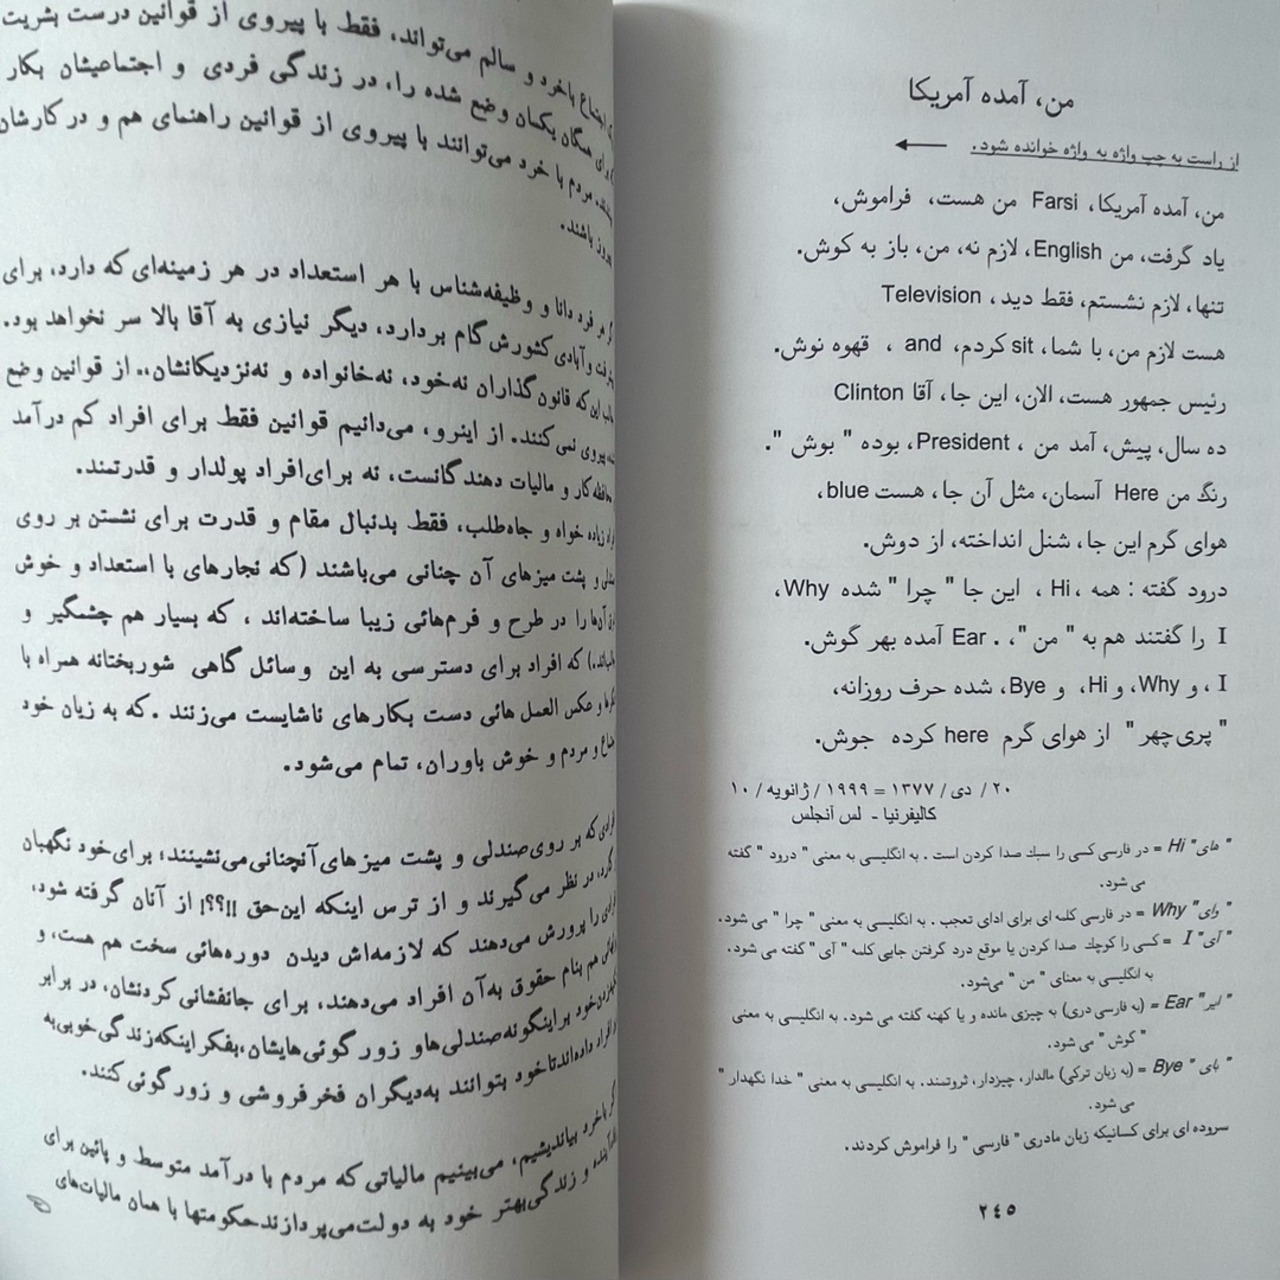 من، آمده آمریکا
از راست به چپ واژه به واژه خوانده شود.
من، آمده آمریکا، Farsi من هست، فراموش،
یاد گرفت، من English، لازم نه، من، باز به کوش.
تنها، لازم نشستم، فقط دید، Television
هست لازم من، با شما، sit کردم، and ، قهوه نوش.
رئیس جمهور هست، الان، این جا، آقا Clinton
ده سال، پیش، آمد من ، President، بوده " بوش ".
رنگ من Here آسمان، مثل آن جا، هست blue،
هوای گرم این جا، شنل انداخته، از دوش.
درود گفته : همه ،Hi ، این جا " چرا " شده Why،
I را گفتند هم به " من "، . Ear آمده بهر گوش.
I ، و Why، و Hi، و Bye، شده حرف روزانه،
" پری‌چهر " از هوای گرم here کرده جوش.
۲۰ / دی / ۱۳۷۷ = ۱۹۹۹ / ژانویه / ۱۰
کالیفرنیا - لس آنجلس
" های" Hi = در فارسی کسی را سبک صدا کردن است . به انگلیسی به معنی " درود " گفته
می شود.
" وای" Why = در فارسی کلمه ای برای ادای تعجب . به انگلیسی به معنی " چرا " می شود.
" آی" I = کسی را کوچک صدا کردن یا موقع درد گرفتن جایی کلمه " آی" گفته می شود.
به انگلیسی به معنای " من " می‌شود.
" ایر" Ear = (به فارسی دری) به چیزی مانده و یا کهنه گفته می شود. به انگلیسی به معنی
" گوش " می شود.
" بای " Bye = (به زبان ترکی) مالدار، چیزدار، ثروتمند. به انگلیسی به معنی " خدا نگهدار "
می شود.
سروده ای برای کسانیکه زبان مادری " فارسی " را فراموش کردند.
۲۴۵
اجتماع باخرد و سالم می‌تواند، فقط با پیروی از قوانین درست بشریت
همگان یکسان وضع شده را، در زندگی فردی و اجتماعیشان بکار
مردم با خرد می‌توانند با پیروی از قوانین راهنمای هم و در کارشان
باشند.
هر فرد دانا و وظیفه‌شناس با هر استعداد در هر زمینه‌ای که دارد، برای
و آبادی کشورش گام بردارد، دیگر نیازی به آقا بالا سر نخواهد بود.
این که قانون‌گذاران نه‌خود، نه‌خانواده و نه‌نزدیکانشان،. از قوانین وضع
پیروی نمی‌کنند. از اینرو، می‌دانیم قوانین فقط برای افراد کم درآمد
محافظه‌کار و مالیات دهندگانست، نه برای‌افراد پولدار و قدرتمند.
زیاده خواه و جاه‌طلب، فقط بدنبال مقام و قدرت برای نشستن بر روی
و پشت میزهای آن چنانی می‌باشند (که نجارهای با استعداد و خوش
آن‌ها را در طرح و فرم‌هائی زیبا ساخته‌اند ، که بسیار هم چشمگیر و
که افراد برای دسترسی به این وسائل گاهی شوربختانه همراه با
و عکس العمل هائی دست بکارهای ناشایست می‌زنند .که به زیان خود
و مردم و خوش باوران، تمام می‌شود.
افرادی‌که بر روی‌صندلی و پشت میزهای‌آنچنانی‌می‌نشینند؛ برای‌خود نگهبان
در نظر می‌گیرند و از ترس اینکه این‌حق !!؟؟! از آنان گرفته شود،
را پرورش می‌دهند که لازمه‌اش دیدن دوره‌هائی سخت هم هست، و
هم بنام حقوق به‌آن افراد می‌دهند، برای جانفشانی کردنشان، در برابر
خود براینگونه‌صندلی‌هاو زورگوئی‌هایشان،بفکراینکه‌زندگی‌خوبی‌به
داده‌اندتاخود بتوانند به‌دیگران فخرفروشی و زورگوئی کنند.
باخرد بیاندیشیم، می‌بینیم مالیاتی که مردم با درآمد متوسط و پائین برای
و زندگی‌بهتر خود به دولت‌می‌پردازندحکومتها با همان مالیات‌های